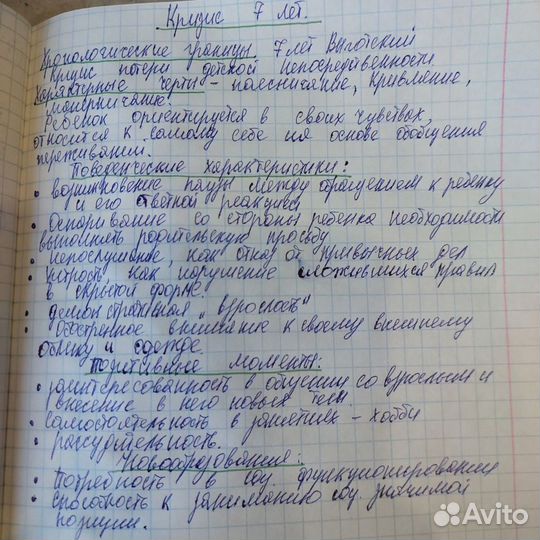 Кризис 7 лет.
Хронологические границы. 7 лет Выготский
Кризис потери детской непосредственности
Характерные черты – паясничание, кривление,
манерничание.
Ребенок ориентируется в своих чувствах,
относится к самому себе на основе обобщения
переживаний.
Поведенческие характеристики:
• возникновение паузы между обращением к ребенку
и его ответной реакцией
• Оспаривание со стороны ребенка необходимости
выполнять родительскую просьбу
• непослушание, как отказ от привычных дел
• хитрость, как нарушение сложившихся правил
в скрытой форме.
• демонстративная „взрослость"
• Обостренное внимание к своему внешнему
облику и одежде.
Позитивные моменты:
• заинтересованность в общении со взрослым и
внесение в него новых тем.
• самостоятельность в занятиях – хобби
• рассудительность.
Новообразования:
• Потребность в соц. функционировании
• способность к заниманию соц. значимой
позиции.
Avito